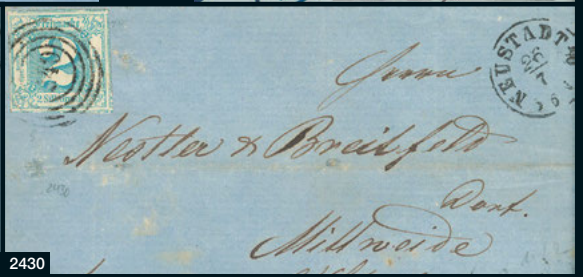 NEUSTADT
26/7
Herrn
Nestler & Breitfeld
Dort.
Mittweida
2430
2430